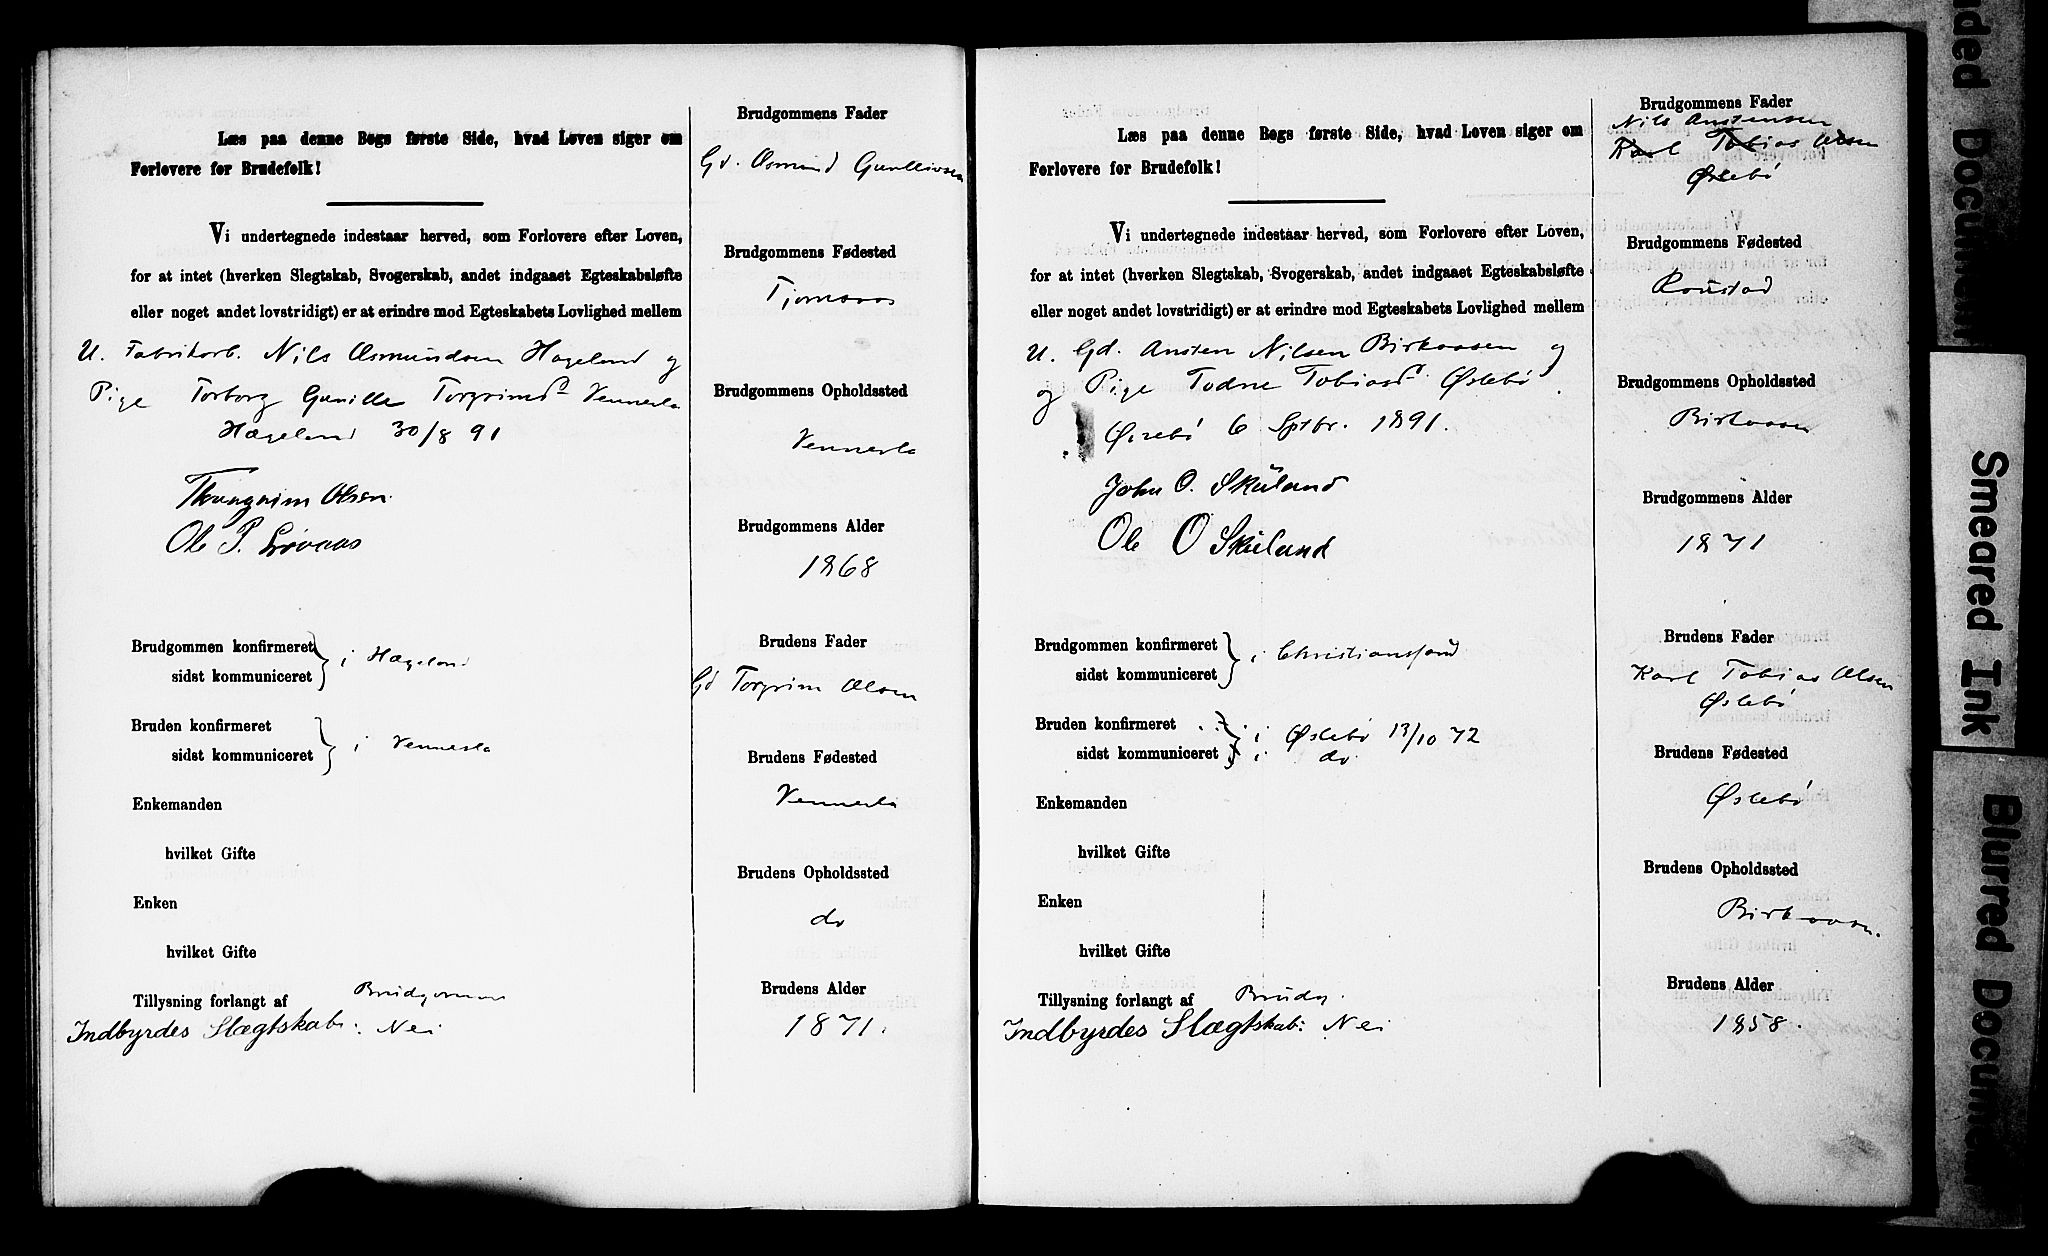 Læs paa denne Bogs første Side, hvad Loven siger om
Forlovere for Brudefolk!
Vi undertegnede indestaar herved, som Forlovere efter Loven,
for at intet (hverken Slegtskab, Svogerskab, andet indgaaet Egteskabsløfte
eller noget andet lovstridigt) er at erindre mod Egteskabets Lovlighed mellem
U. Fabrikarb. Nils Osmundsen Hageland og
Pige Torborg Gunille Torgrimsd Vennesla
Hægeland 30/8 91
Thorgrim Olsen
Ole P. Løvaas
Brudgommen konfirmeret
sidst kommuniceret } i Hægeland
Bruden konfirmeret
sidst kommuniceret } i Vennesla
Enkemanden
hvilket Gifte
Enken
hvilket Gifte
Tillysning forlangt af Brudgommen
Indbyrdes Slægtskab: Nei
Brudgommens Fader
Gd. Osmund Gunleivsen
Brudgommens Fødested
Tjomsaas
Brudgommens Opholdssted
Vennesla
Brudgommens Alder
1868
Brudens Fader
Gd Torgrim Olsen
Brudens Fødested
Vennesla
Brudens Opholdssted
do
Brudens Alder
1871.
Læs paa denne Bogs første Side, hvad Loven siger om
Forlovere for Brudefolk!
Vi undertegnede indestaar herved, som Forlovere efter Loven,
for at intet (hverken Slegtskab, Svogerskab, andet indgaaet Egteskabsløfte
eller noget andet lovstridigt) er at erindre mod Egteskabets Lovlighed mellem
U. Gd. Ansten Nilsen Birkaasen og
og Pige Todne Tobiasd Øslebø.
Øslebø 6 Sptbr. 1891.
John O. Skuland
Ole O Skuland
Brudgommen konfirmeret
sidst kommuniceret } i Christianssand
Bruden konfirmeret } i Øslebø 13/10 72
sidst kommuniceret } i do
Enkemanden
hvilket Gifte
Enken
hvilket Gifte
Tillysning forlangt af Brudg.
Indbyrdes Slægtskab: Nei
Brudgommens Fader
Nils Anstensen
Karl Tobias Olsen
Øslebø
Brudgommens Fødested
Brudgommens Opholdssted
Birkaasen
Brudgommens Alder
1871
Brudens Fader
Karl Tobias Olsen
Øslebø
Brudens Fødested
Øslebø
Brudens Opholdssted
Birkaasen.
Brudens Alder
1858.
ded Document
Smeared Ink
Blurred Document